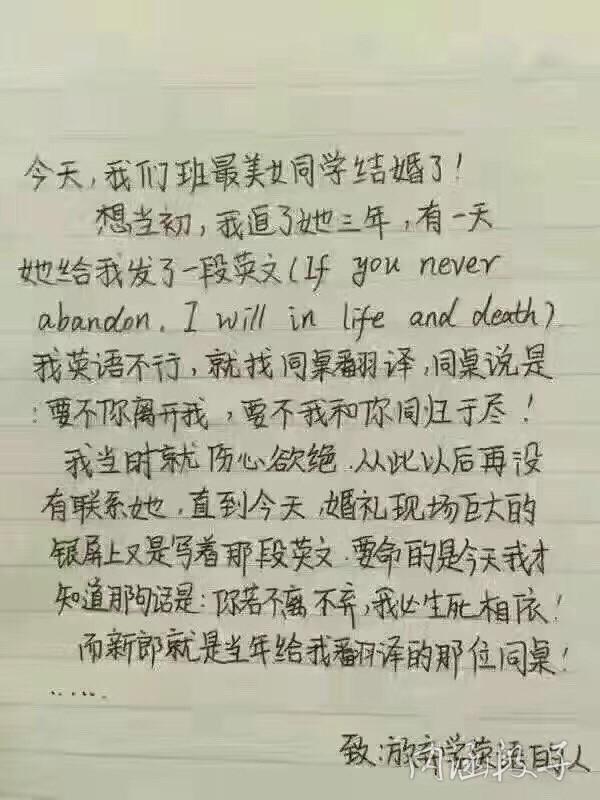 今天,我们班最美女同学结婚了!
想当初,我追了她三年,有一天
她给我发了一段英文(If you never
abandon. I will in life and death)
我英语不行,就找同桌翻译,同桌说是
:要不你离开我,要不我和你同归于尽!
我当时就伤心欲绝.从此以后再没
有联系她,直到今天,婚礼现场巨大的
银屏上又是写着那段英文.要命的是今天我才
知道那句话是:你若不离不弃,我必生死相依!
而新郎就是当年给我翻译的那位同桌!
......
致:放弃学英语的人
内涵段子